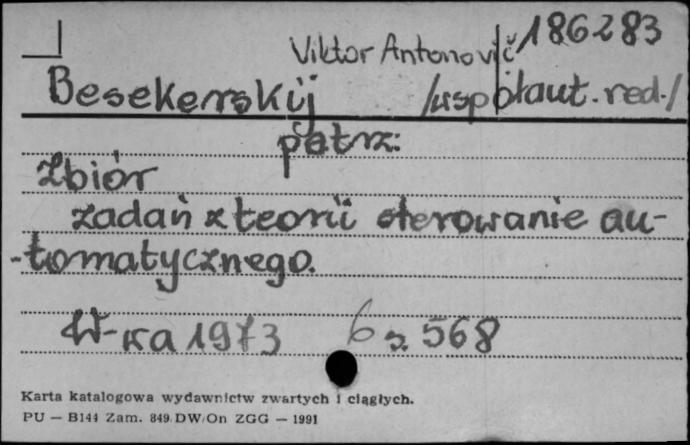 186283
Viktor Antonovič
Besekerskij /współaut. red./
patrz:
Zbiór
zadań z teorii sterowanie au-
-tomatycznego.
W-wa 1973 6 s. 568
Karta katalogowa wydawnictw zwartych i ciągłych.
PU — B144 Zam. 849 DW/On ZGG — 1991